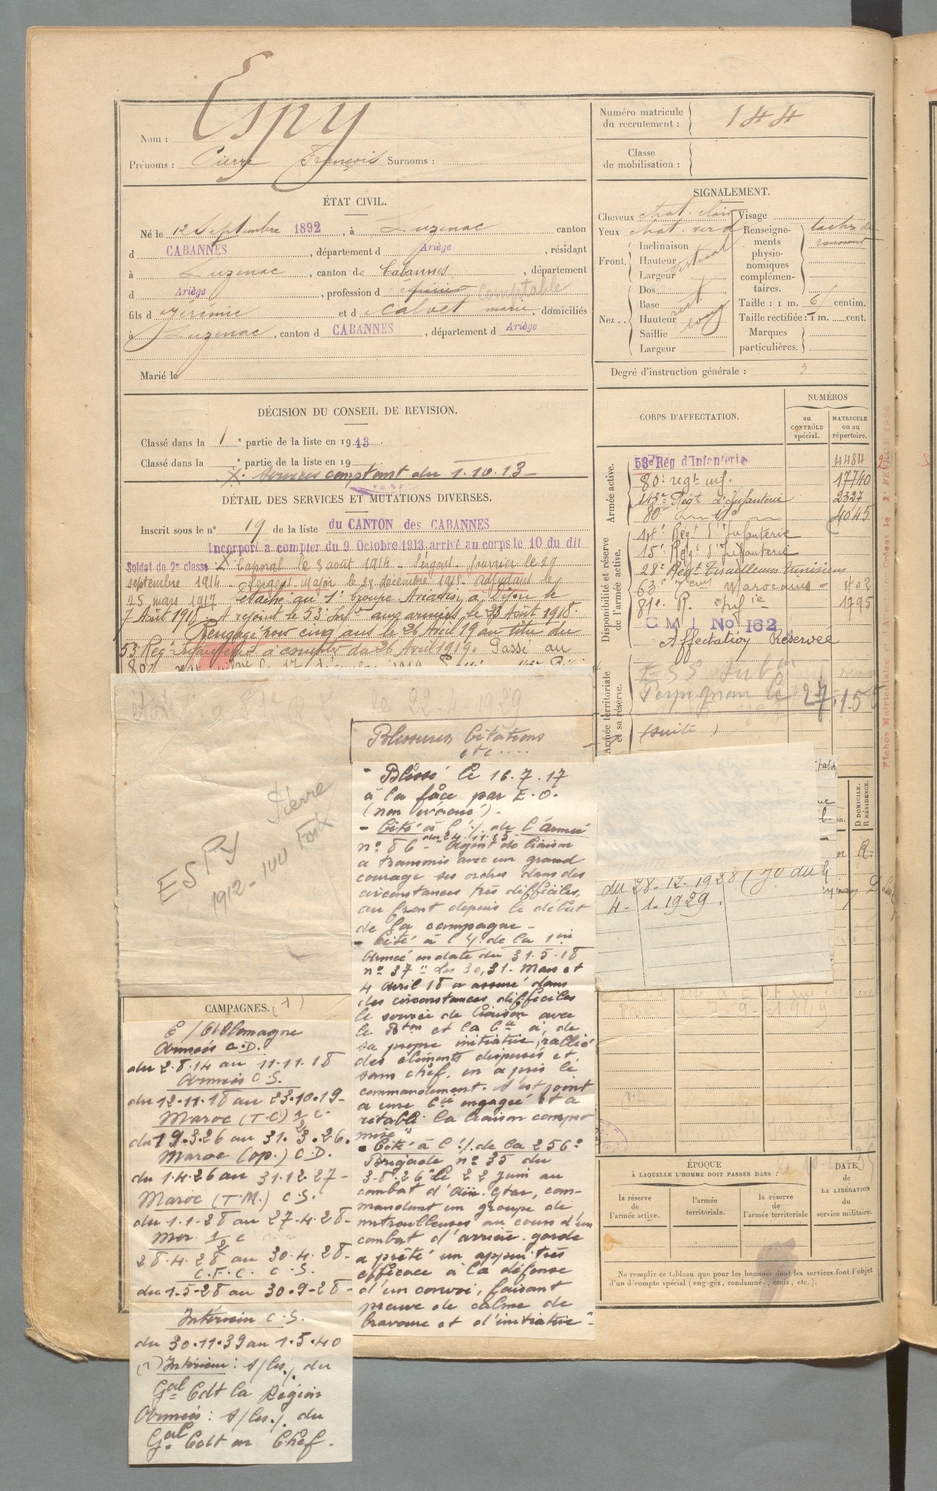 Nom : Espy
Prénoms : Pierre François Surnoms :
Numéro matricule du recrutement : 144
Classe de mobilisation :
ÉTAT CIVIL.
Né le 12 Septembre 1892, à Luzenac canton
d CABANNES, département d Ariège, résidant
à Luzenac, canton de Cabannes, département
d Ariège, profession d Comptable
fils d Jérémie et d Calvet marie, domiciliés
à Luzenac, canton d CABANNES, département d Ariège
Marié le
SIGNALEMENT.
Cheveux chat. clair
Yeux chat. verd
Front.
Inclinaison vertical
Hauteur
Largeur
Nez.
Dos
Base
Hauteur
Saillie long
Largeur
Visage
Renseignements physionomiques complémentaires.
Taille : 1 m. 61 centim.
Taille rectifiée : 1 m. cent.
Marques particulières.
Degré d'instruction générale : 3
DÉCISION DU CONSEIL DE REVISION.
Classé dans la 1e partie de la liste en 1913
Classé dans la e partie de la liste en 19
comptant du 1.10.13
DÉTAIL DES SERVICES ET MUTATIONS DIVERSES.
Inscrit sous le n° 19 de la liste du CANTON des CABANNES
Incorporé a compter du 9 Octobre 1913, arrivé au corps le 10 du dit
Soldat de 2e classe Caporal le 3 août 1914 - Sergent fourrier le 29
septembre 1914 - Sergent major le 28 décembre 1915 adjudant le
25 mars 1917 Détaché au 1er groupe Aviation, à Dijon le
7 Avril 1918 A rejoint le 53e Infie aux armées le 23 Août 1918.
Rengagé pour cinq ans le 26 Avril 19 au titre du
53 Reg. Infanterie à compter du 26 Avril 1919. Passé au
CORPS D'AFFECTATION.
NUMÉROS
au CONTRÔLE spécial.
MATRICULE ou au répertoire.
Armée active.
53e Rég d'Infanterie 4484
80e régt inf. 17740
113e Régt d'Infanterie 2327
80e 4045
Disponibilité et réserve de l'armée active.
14e Régt d'Infanterie
15e Régt d'Infanterie
28e Régt Tirailleurs Tunisiens
63e Marocains 403
81e R. Infie 1295
C M I No 162
Affectation Réservée
Armée territoriale et sa réserve.
Perpignan le 27.1.5
(suite)
le 22-4-1929
ESPY Pierre
1912-144 Foix
Blessures Citations
etc....
- Blessé le 16.7.17
à la face par E.O.
- Cité à l'% de l'armée
n° 86 "Agent de liaison
a transmis avec un grand
courage ses ordres dans des
circonstances très difficiles,
au front depuis le début
de la campagne -
- Cité à l'% de la 1ère
Armée en date du 31.5.18
n° 37 "Les 30, 31 Mars et
4 Avril 18 a assuré dans
des circonstances difficiles
le service de liaison avec
le Bton et la Cie a, de
sa propre initiative, rallié
des éléments dispersés et
sans chef, en a pris le
commandement. S'est joint
a une Cie engagée et a
rétabli la liaison compro
mise"
- Cité à l'% de la 256e
Brigade n° 35 du
3-8-26 le 22 juin au
combat d'Aïn com-
mandant un groupe de
mitrailleuses au cours d'un
combat d'arrière garde
a prêté un appui très
efficace à la défense
d'un convoi, faisant
preuve de calme de
bravoure et d'initiative"
du 28-12-1928 (JO du
4-1-1929.
CAMPAGNES. (1)
C/Allemagne
Armées C.D.
du 2.8.14 au 11.11.18
Armées C.S.
du 12.11.18 au 23.10.19-
Maroc (T.C) 1/2 C.
du 19.3.26 au 31.3.26.
Maroc (op.) C.D.
du 1.4.26 au 31.12.27-
Maroc (T.M.) C.S.
du 1.1.28 au 27.4.28-
Mer 1/2 C
28.4.28 au 30.4.28-
C.F.C. C.S.
du 1.5.28 au 30.9.28-
Intérieur C.S.
du 30.11.39 au 1.5.40
(1) Intérieur : du
Gal Cdt la Région
Armées : du
Gal Cdt en Chef.
D. DOMICILE.
R. RÉSIDENCE.
ÉPOQUE
À LAQUELLE L'HOMME DOIT PASSER DANS :
la réserve de l'armée active.
l'armée territoriale.
la réserve de l'armée territoriale
DATE de LA LIBÉRATION du service militaire.
Ne remplir ce tableau que pour les hommes dont les services font l'objet
d'un décompte spécial (engagés, condamnés, omis, etc.).